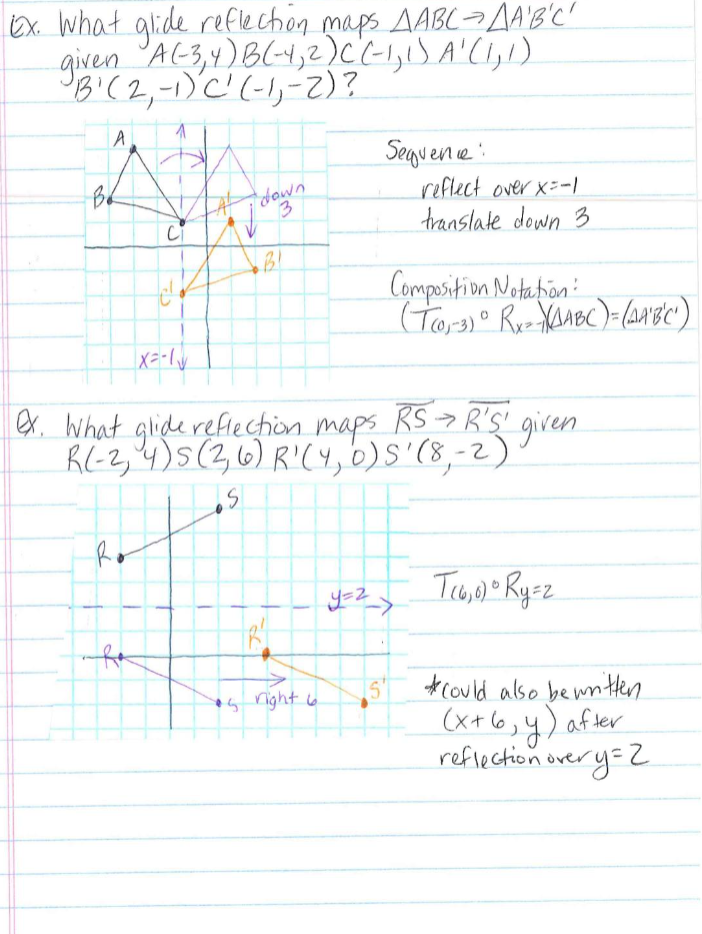 Ex. What glide reflection maps △ABC→△A'B'C'
given A(-3,4) B(-4,2) C(-1,1) A'(1,1)
B'(2,-1) C'(-1,-2)?
A
B
C
down
3
A'
B'
C'
x=-1
Sequence:
reflect over x=-1
translate down 3
Composition Notation:
(T(0,-3) ∘ Rx=-1)(△ABC)=(△A'B'C')
Ex. What glide reflection maps R̅S̅ → R̅'̅S̅'̅ given
R(-2,4) S(2,6) R'(4,0) S'(8,-2)
S
R
y=2
R'
R
S'
S
right 6
T(6,0) ∘ Ry=2
*could also be written
(x+6, y) after
reflection over y=2